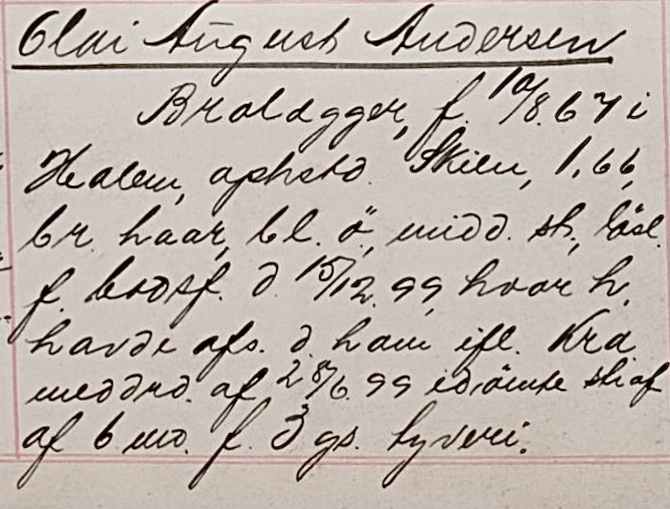 Olai August Andersen
Brolægger, f. 10/8. 67 i
Halen, opholtd. Skien, 1,66,
br. haar, bl. ö., midd. st., løsl.
f. bodsf. d. 15/12. 99, hvor h.
havde afs. d. ham ifl. Kra
meddrd. af 28/6. 99 idömte straf
af 6 md. f. 3 gs. tyveri.